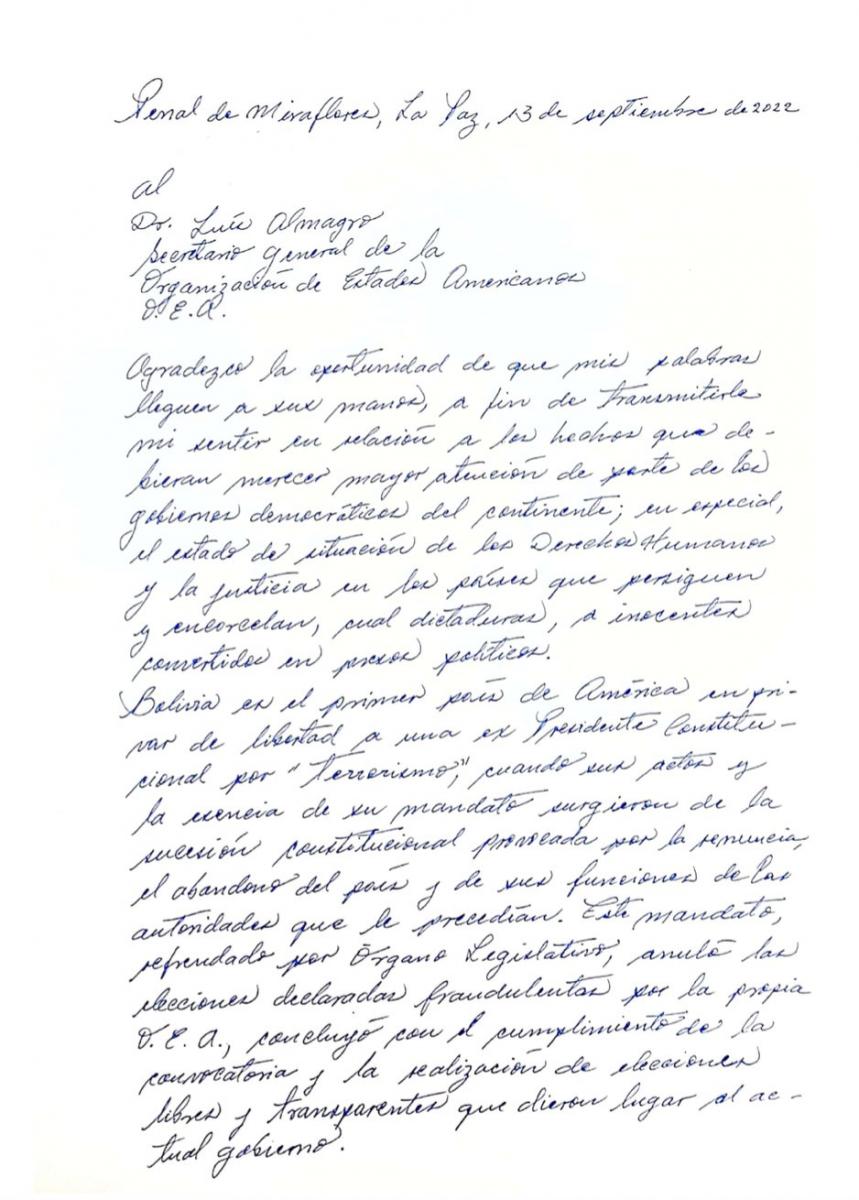 Penal de Miraflores, La Paz, 13 de septiembre de 2022
al
Dr. Luis Almagro
Secretario General de la
Organización de Estados Americanos
O.E.A.
Agradezco la oportunidad de que mis palabras
lleguen a sus manos, a fin de transmitirle
mi sentir en relación a los hechos que de-
bieran merecer mayor atención de parte de los
gobiernos democráticos del continente; en especial,
el estado de situación de los Derechos Humanos
y la justicia en los países que persiguen
y encarcelan, cual dictaduras, a inocentes
convertidos en presos políticos.
Bolivia es el primer país de América en pri-
var de libertad a una ex Presidente Constitu-
cional por "terrorismo", cuando sus actos y
la esencia de su mandato surgieron de la
sucesión constitucional provocada por la renuncia,
el abandono del país y de sus funciones de las
autoridades que le precedían. Este mandato,
refrendado por Órgano Legislativo, anuló las
elecciones declaradas fraudulentas por la propia
O.E.A., concluyó con el cumplimiento de la
convocatoria y la realización de elecciones
libres y transparentes que dieron lugar al ac-
tual gobierno.